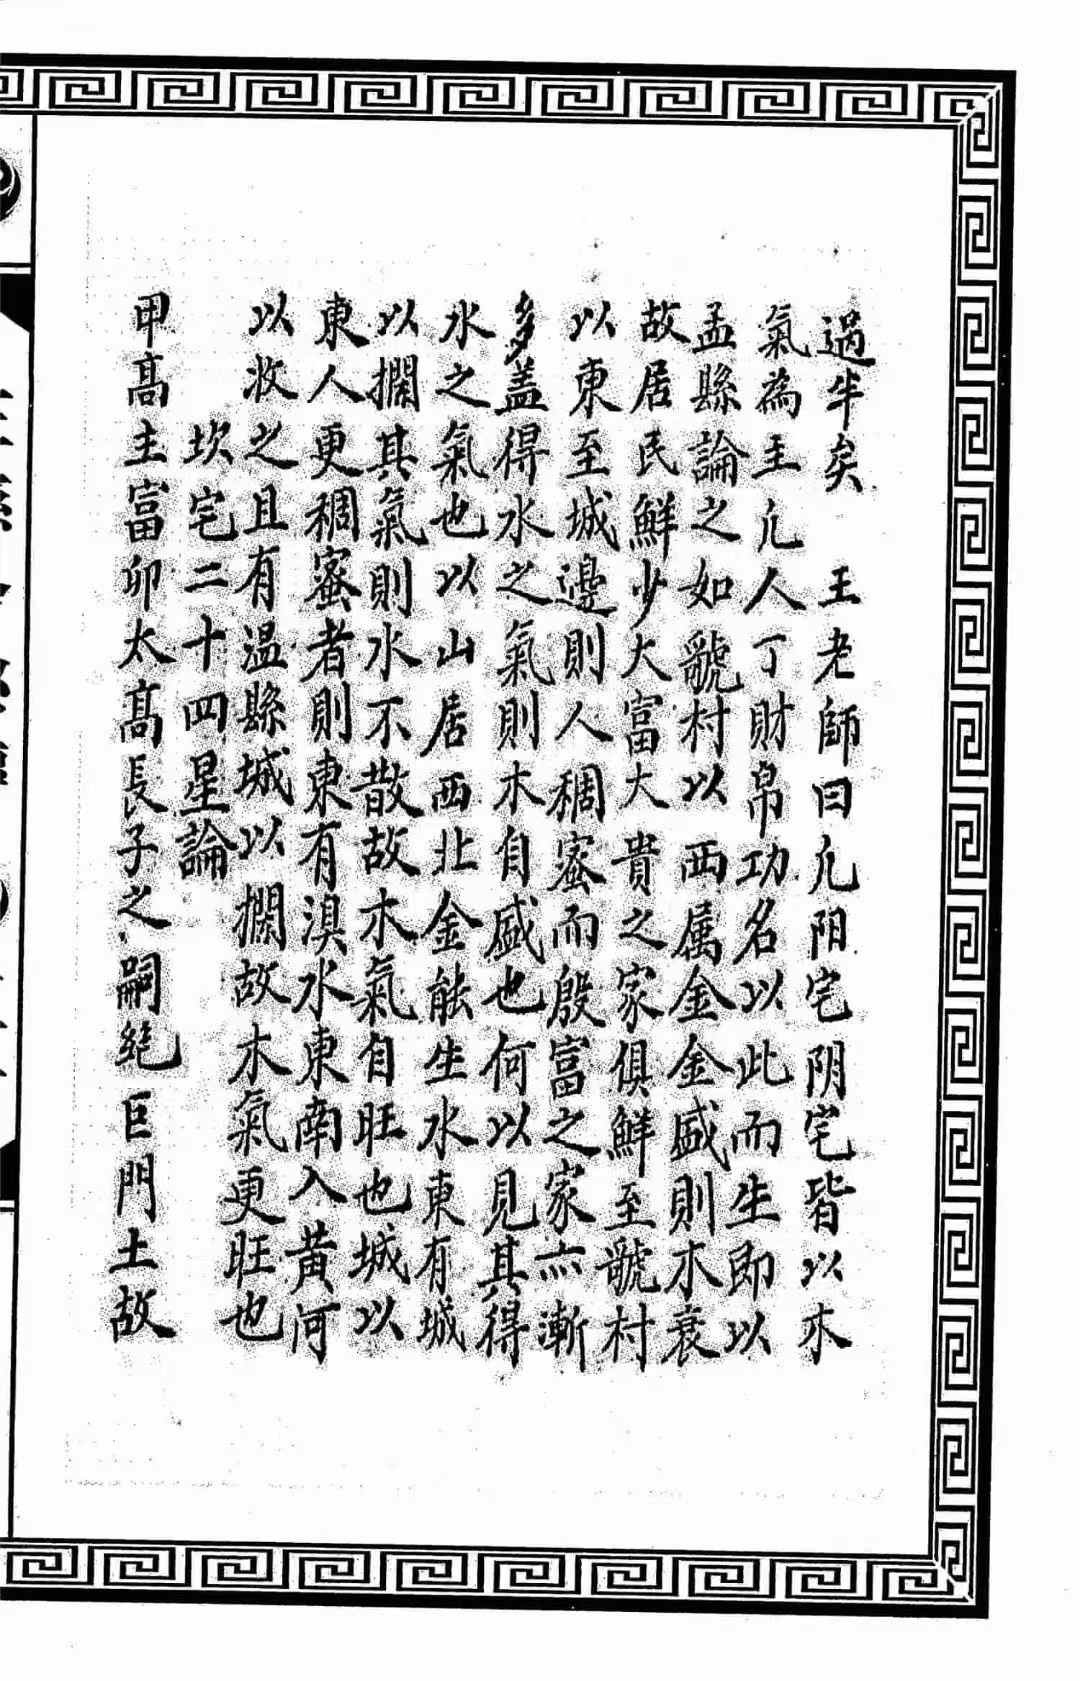 過半矣　王老師曰凢阳宅阴宅皆以木
氣為主凢人丁財帛功名以此而生即以
孟縣論之如虢村以西属金金盛則木衰
故居民鮮少大富大貴之家俱鮮至虢村
以東至城邊則人稠宻而殷富之家亦漸
多盖得水之氣則木自盛也何以見其得
水之氣也以山居西北金能生水東有城
以攔其氣則水不散故木氣自旺也城以
東人更稠宻者則東有湨水東南入黄河
以收之且有温縣城以攔故木氣更旺也
坎宅二十四星論
甲高主富卯太高長子之嗣絶巨門土故